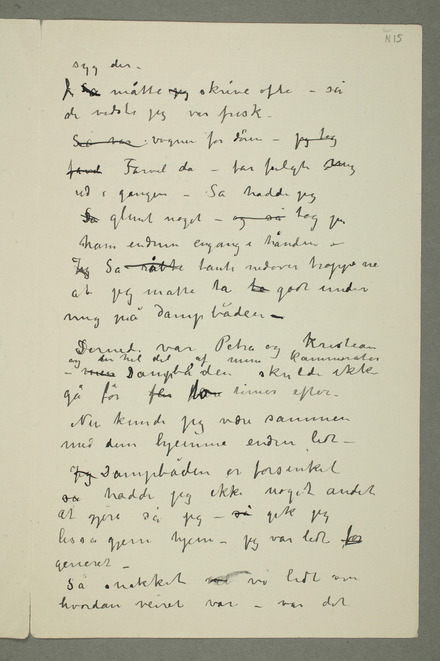 N 15
syg der –
J Så måtte jeg skrive ofte – så
de vidste jeg var frisk –
Så var vognen for døren – jeg tog
farvel Farvel da – far fulgte mig
ud i gangen – Så hadde jeg
Så glemt noget – og så tog jeg
ham endnu engang i hånden –
Jeg Så råbte tante nedover trappene
at jeg måtte ta ta godt under
mig på Dampbåden –
Dernede var Petra og Kristian
og en hel del af mine kammerater
– men Dampbåden skulde ikke
gå før timer efter –
Nu kunde jeg være sammen
med dem hjemme endnu lidt –
Jeg Dampbåden er forsinket
så hadde jeg ikke noget andet
at gjøre så jeg – så gik jeg
lissa gjern hjem – jeg var lidt for
generet –
Så snakket vi lidt om
hvordan veiret var – var det